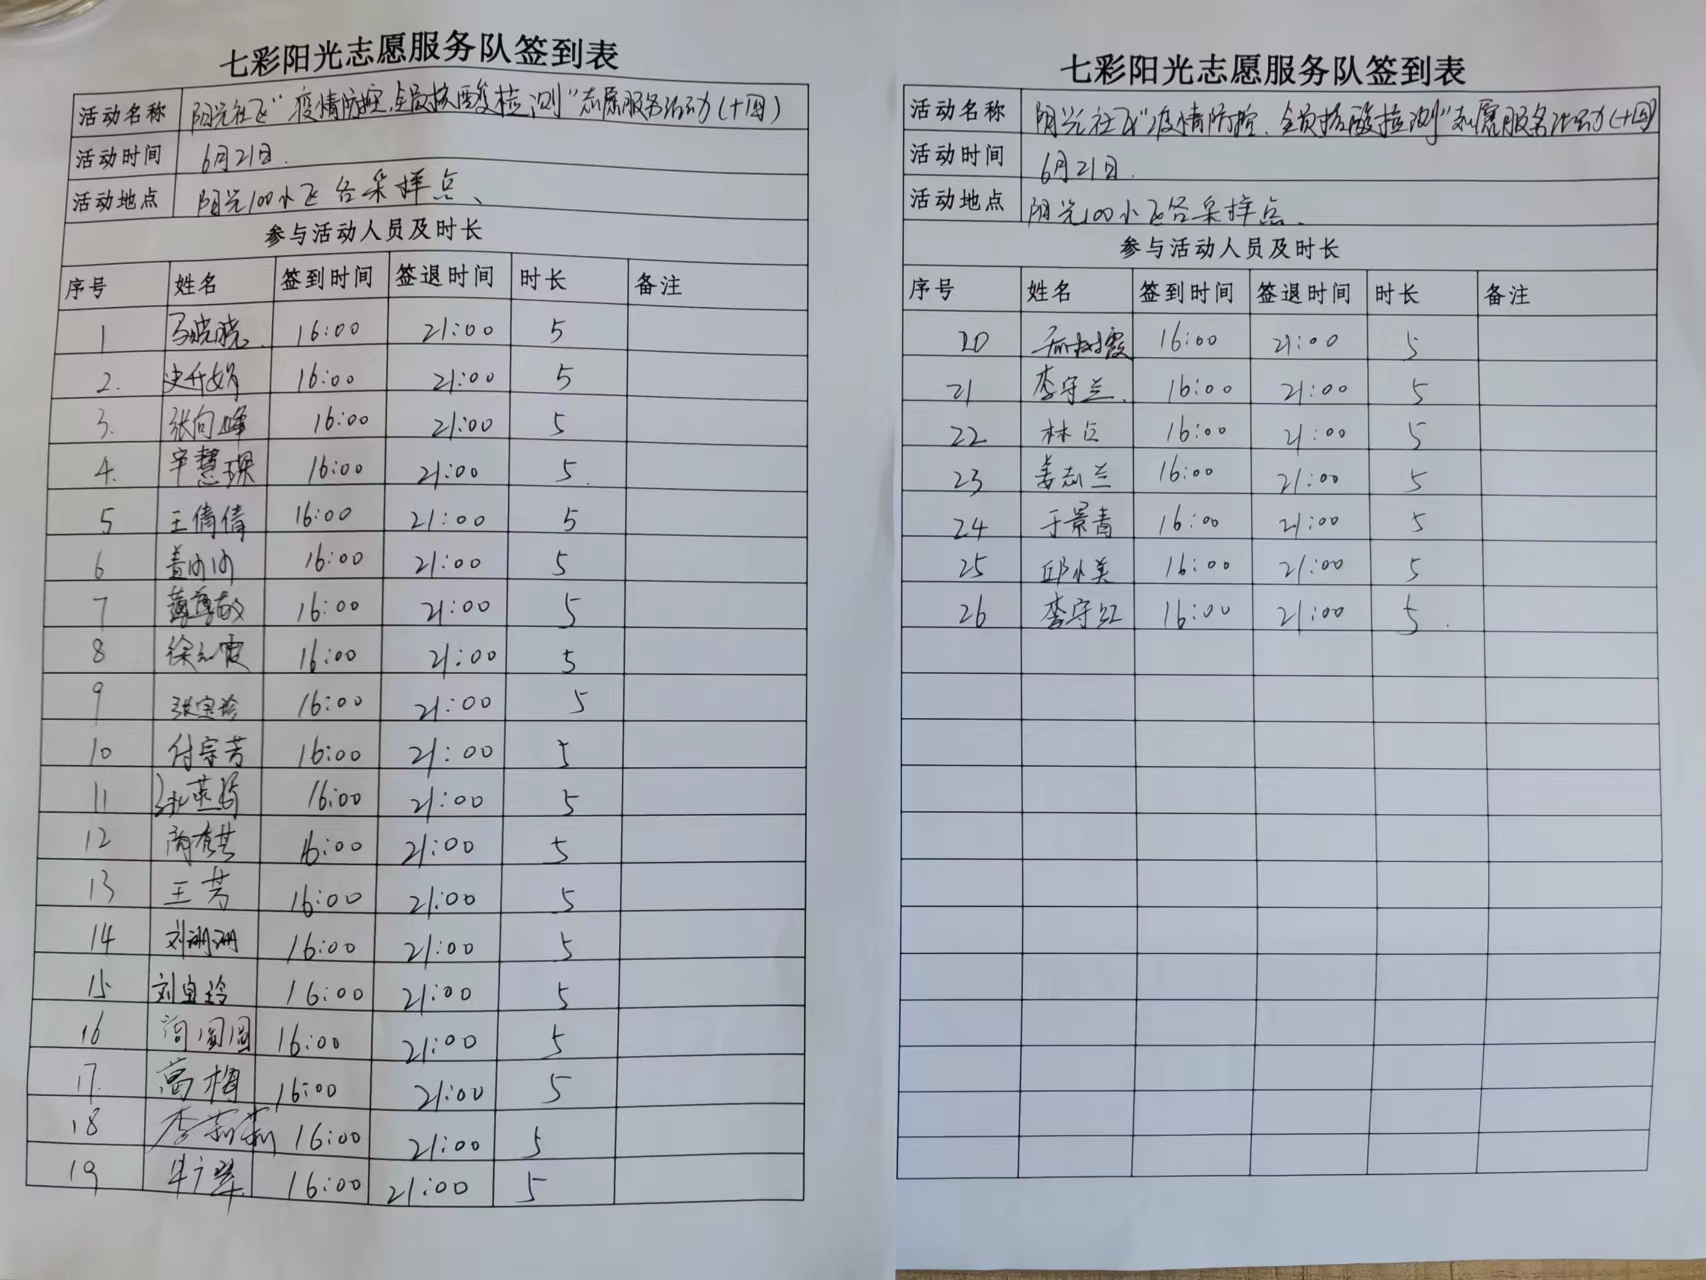 七彩阳光志愿服务队签到表
活动名称 阳光社区“疫情防控.全员核酸检测”志愿服务活动(十四)
活动时间 6月21日.
活动地点 阳光100小区各采样点、
参与活动人员及时长
序号 姓名 签到时间 签退时间 时长 备注
1 马晓晓. 16:00 21:00 5
2. 16:00 21:00 5
3. 张向峰 16:00 21:00 5
4. 16:00 21:00 5.
5 王倩倩 16:00 21:00 5
6 16:00 21:00 5
7 16:00 21:00 5
8 16:00 21:00 5
9 16:00 21:00 5
10 付宗芳 16:00 21:00 5
11 16:00 21:00 5
12 16:00 21:00 5
13 王芳 16:00 21:00 5
14 刘珊珊 16:00 21:00 5
15 16:00 21:00 5
16 16:00 21:00 5
17. 高梅 16:00 21:00 5
18 李莉莉 16:00 21:00 5
19 16:00 21:00 5
七彩阳光志愿服务队签到表
活动名称 阳光社区“疫情防控.全员核酸检测”志愿服务活动(十四)
活动时间 6月21日.
活动地点 阳光100小区各采样点、
参与活动人员及时长
序号 姓名 签到时间 签退时间 时长 备注
20 16:00 21:00 5
21 李守兰. 16:00 21:00 5
22 16:00 21:00 5
23 姜志兰 16:00 21:00 5
24 于景青 16:00 21:00 5
25 邱小美 16:00 21:00 5
26 李守红 16:00 21:00 5.